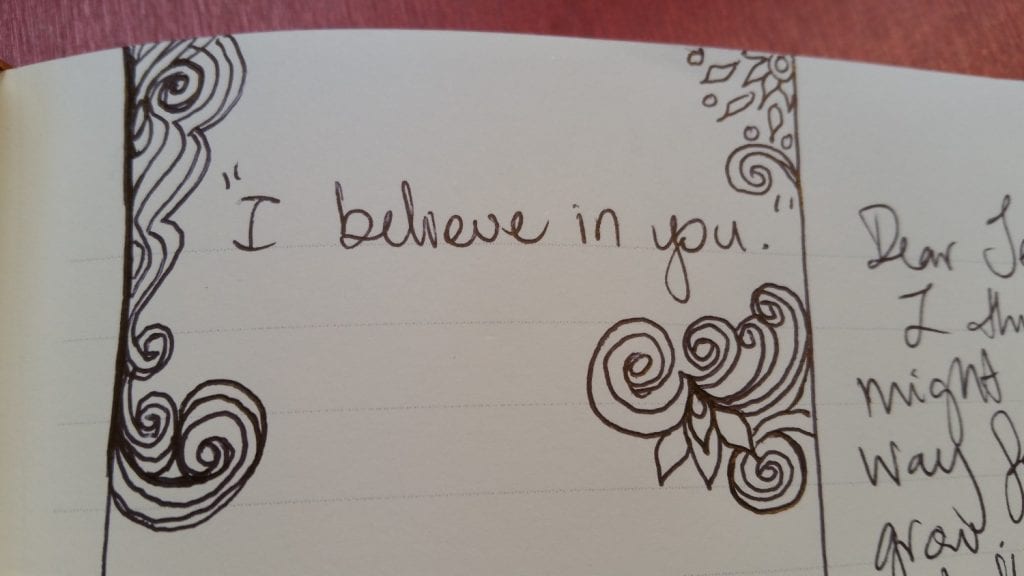 "I believe in you."
Dear
I
might
way
grow.